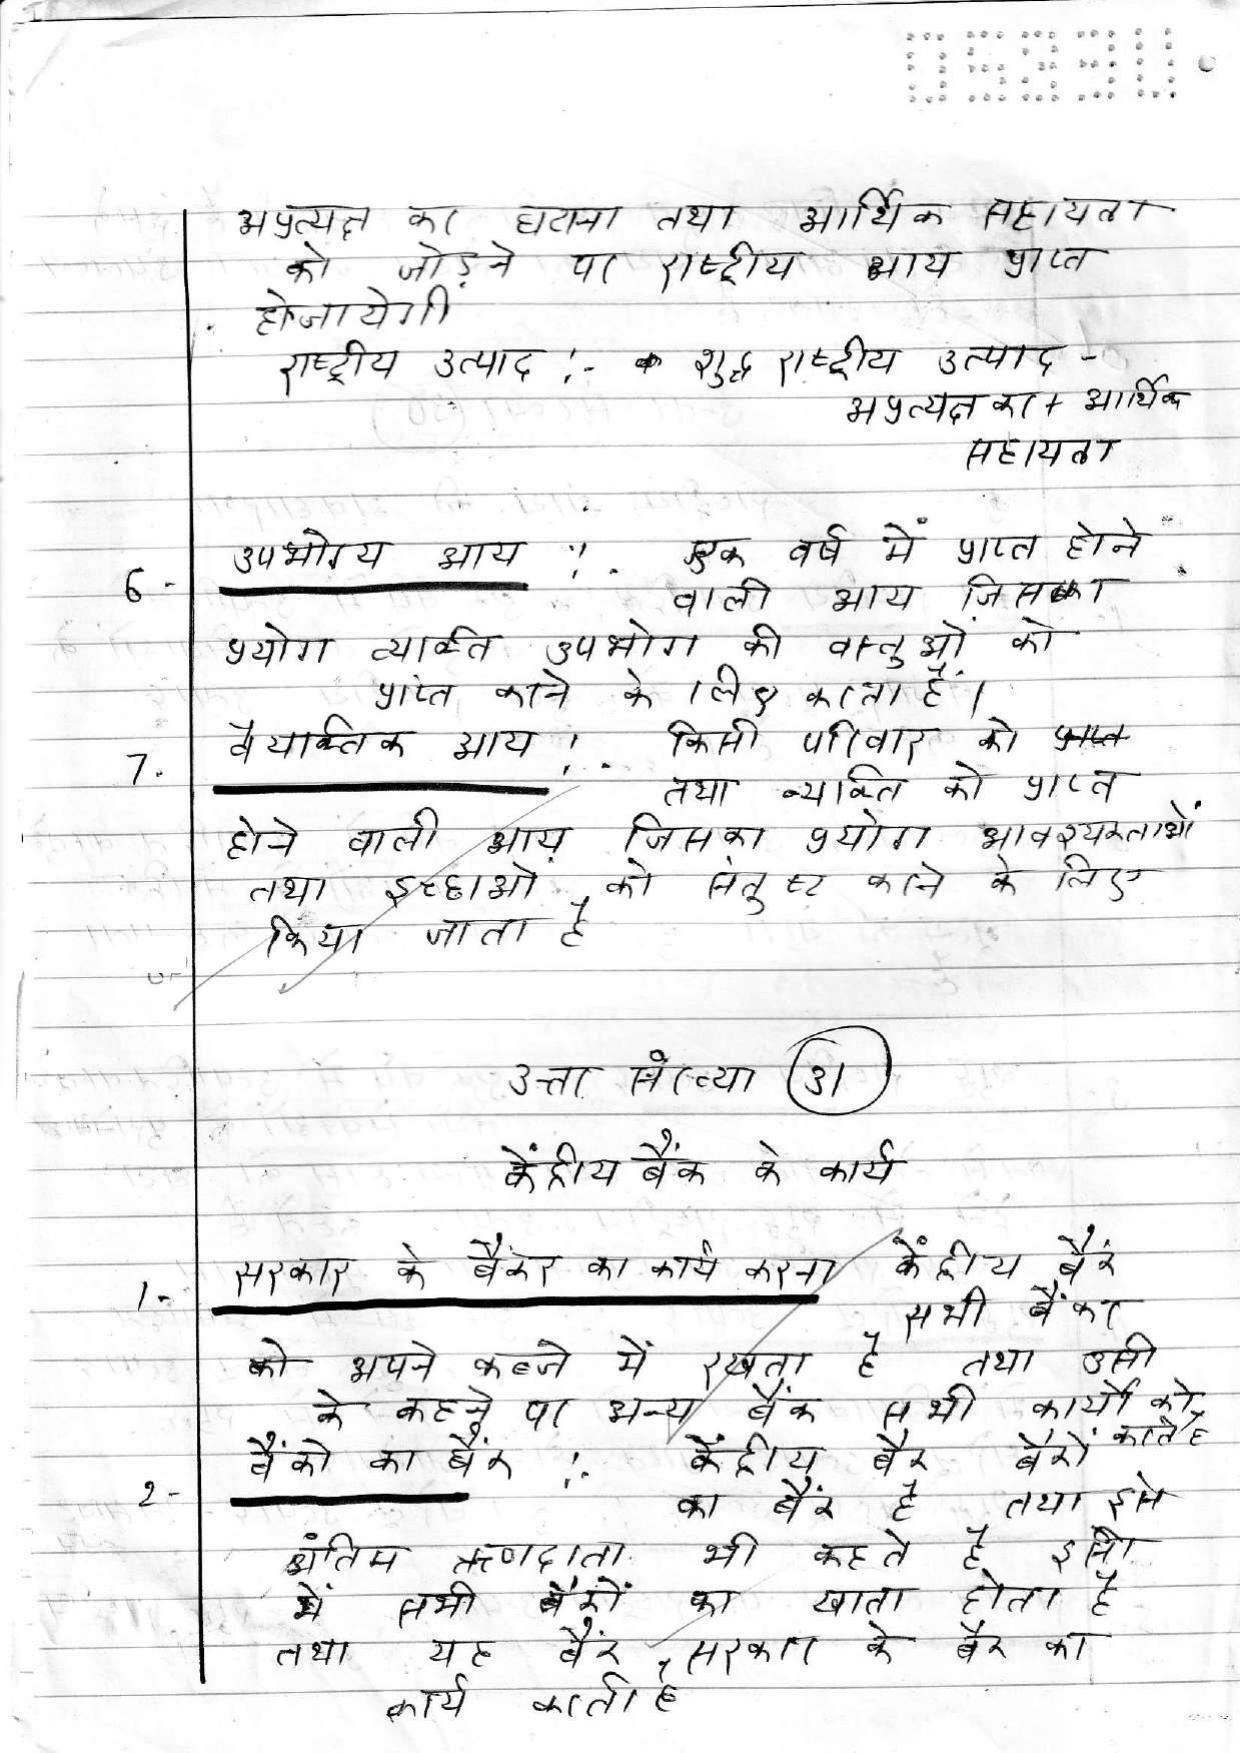 अप्रत्यक्ष कर घटाना तथा आर्थिक सहायता
को जोड़ने पर राष्ट्रीय आय प्राप्त
होजायेगी
राष्ट्रीय उत्पाद :- शुद्ध राष्ट्रीय उत्पाद -
अप्रत्यक्ष कर + आर्थिक
सहायता
6 - उपभोग्य आय :. एक वर्ष में प्राप्त होने
वाली आय जिसका
प्रयोग व्यक्ति उपभोग की वस्तुओं को
प्राप्त करने के लिए करता हैं।
7. वैयक्तिक आय :. किसी परिवार को प्राप्त
तथा व्यक्ति को प्राप्त
होने वाली आय जिसका प्रयोग आवश्यकताओं
तथा इच्छाओ को संतुष्ट करने के लिए
किया जाता है
उत्तर संख्या 31
केंद्रीय बैंक के कार्य
1- सरकार के बैंकर का कार्य करना केंद्रीय बैंक
सभी बैंकर
को अपने कब्जे में रखता है तथा उसी
के कहने पर अन्य बैंक सभी कार्यों को
करते है
2- बैंको का बैंक :. केंद्रीय बैंक बैंकों
का बैंक है तथा इसे
अंतिम ऋणदाता भी कहते है इसी
में सभी बैंकों का खाता होता है
तथा यह बैंक सरकार के बैंक का
कार्य करती है